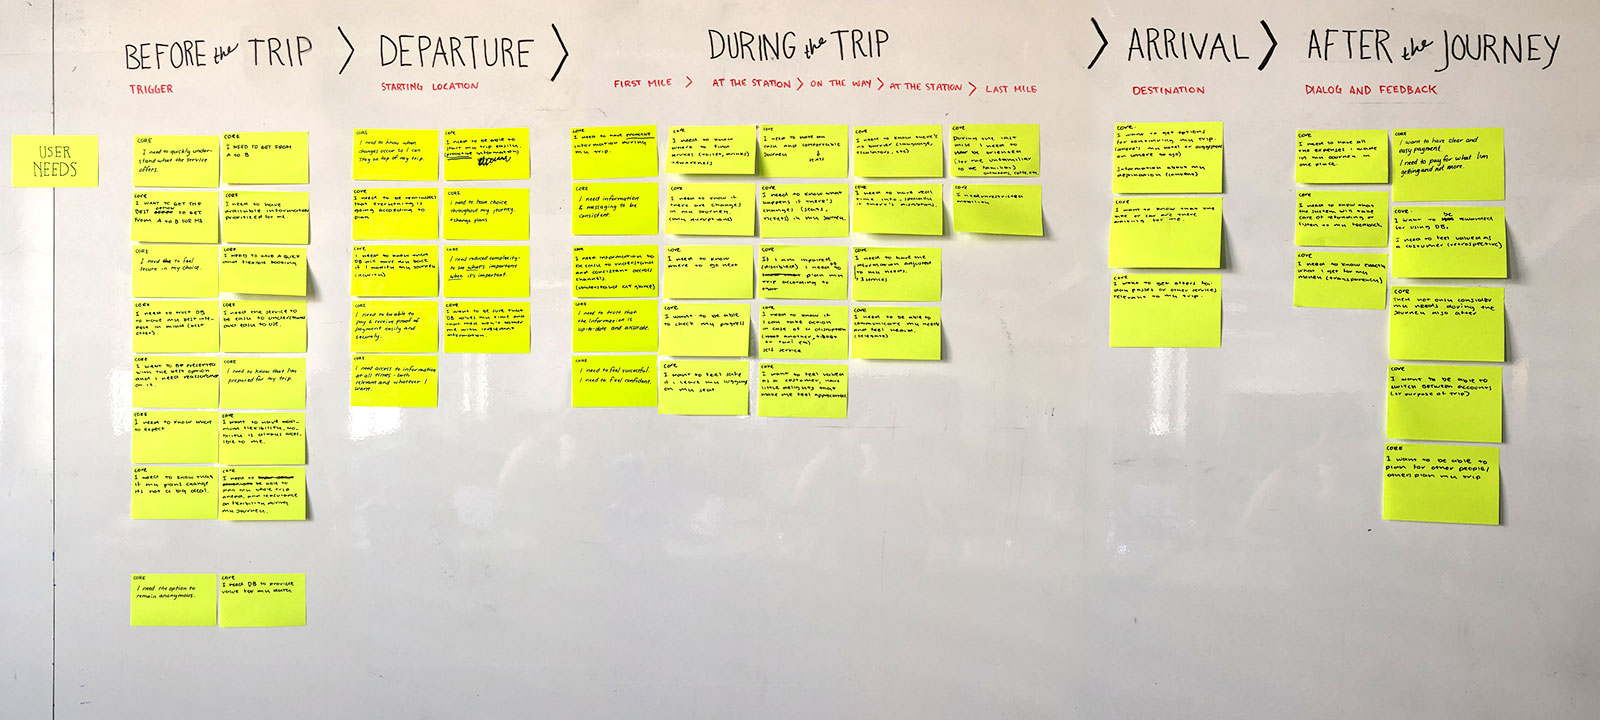 BEFORE the TRIP > DEPARTURE > DURING the TRIP > ARRIVAL > AFTER the JOURNEY
TRIGGER
STARTING LOCATION
FIRST MILE > AT THE STATION > ON THE WAY > AT THE STATION > LAST MILE
DESTINATION
DIALOG AND FEEDBACK
USER
NEEDS
CORE
I need to quickly under-
stand what the service
offers.
CORE
I NEED TO GET FROM
A TO B
CORE
I WANT TO GET THE
BEST OPTION TO GET
FROM A TO B FOR ME
CORE
I need to have
available information
prioritized for me.
CORE
I need the to feel
secure in my choice.
CORE
I NEED TO HAVE A QUICK
and flexible booking
CORE
I need to trust DB
to have my best inte-
rest in mind (best
offer)
CORE
I need the service to
be easy to understand
and easy to use.
CORE
I want to be presented
with the best option
and I need reassurance
on it.
CORE
I need to know that I'm
prepared for my trip.
CORE
I need to know what
to expect
CORE
I want to have maxi-
mum flexibility, mo-
bility is always acces-
ible to me.
CORE
I need to know that
if my plans change
it's not a big deal.
CORE
I need to
be able to
plan my whole trip
ahead, and reassurance
on flexibility during
my journey.
CORE
I need the option to
remain anonymous.
CORE
I need DB to provide
value for my data
CORE
I need to know when
changes occur so I can
stay on top of my trip.
CORE
I need to be able to
start my trip easily.
(proactive information)
CORE
I need to be reminded
that everything is
going according to
plan
CORE
I need to have choice
throughout my journey.
+change plans
CORE
I need to know that
DB will have my back
if I modify my journey
CORE
I need reduced complexity-
to see what's important
when it's important.
CORE
I need to be able to
pay & receive proof of
payment easily and
securely.
CORE
I want to be sure that
DB values my time and
that they won't bother
me with irrelevant
information.
CORE
I need access to information
at all times - both
relevant and whenever I
want.
CORE
I need to have proactive
information during
my trip.
CORE
I need information
& messaging to be
consistent.
CORE
I need information to
be easy to understand
and consistent across
channels
(understand at glance)
CORE
I need to trust that
the information is
up-to-date and accurate.
CORE
I need to feel successful.
I need to feel confident.
CORE
I need to know
where to find
CORE
I need to know if
there are changes
in my journey
(any disruptions)
CORE
I need to know
where to go next
CORE
I want to be able
to check my progress
CORE
I want to feel safe
if I leave my luggage
on my seat
CORE
I need to have an
easy and comfortable
journey
↓
seats
CORE
I need to know what
happens if there's
changes (seats,
tickets) in my journey.
CORE
If I am impaired
(disabled) I need to
plan my
trip according to
CORE
I need to know if
I can take action
in case of a disruption
self service
CORE
I want to feel valued
as a customer, have
little delights that
make me feel appreciated
CORE
I need to know there's
no barrier (language,
escalators, etc)
CORE
I need to have real
time info, especially
if there's disruptions.
CORE
I need to have the
information adjusted
to my needs.
CORE
I need to be able to
communicate my needs
and feel heard.
CORE
During the last
mile I need to
be oriented
(for the unfamiliar
to be familiar)
CORE
CORE
I want to get options
for continuing my trip.
Information about my
destination
I want to know that the
are there
waiting for me.
CORE
I want to get offers for
day passes or other services
relevant to my trip.
CORE
I need to have all
the expenses I made
in my journey in
one place.
CORE
I need to know that
the system will take
care of refunding or
listen to my feedback
CORE
I need to know exactly
what I get for my
money (transparency)
CORE
I want to have clear and
easy payment.
I need to pay for what I'm
getting and not more.
CORE
I want to be rewarded
for using DB.
I need to feel valued as
a customer (retrospective)
CORE
They not only consider
my needs during the
journey also after
CORE
I want to be able to
switch between accounts
(or purpose of trip)
CORE
I want to be able to
plan for other people/
others plan my trip